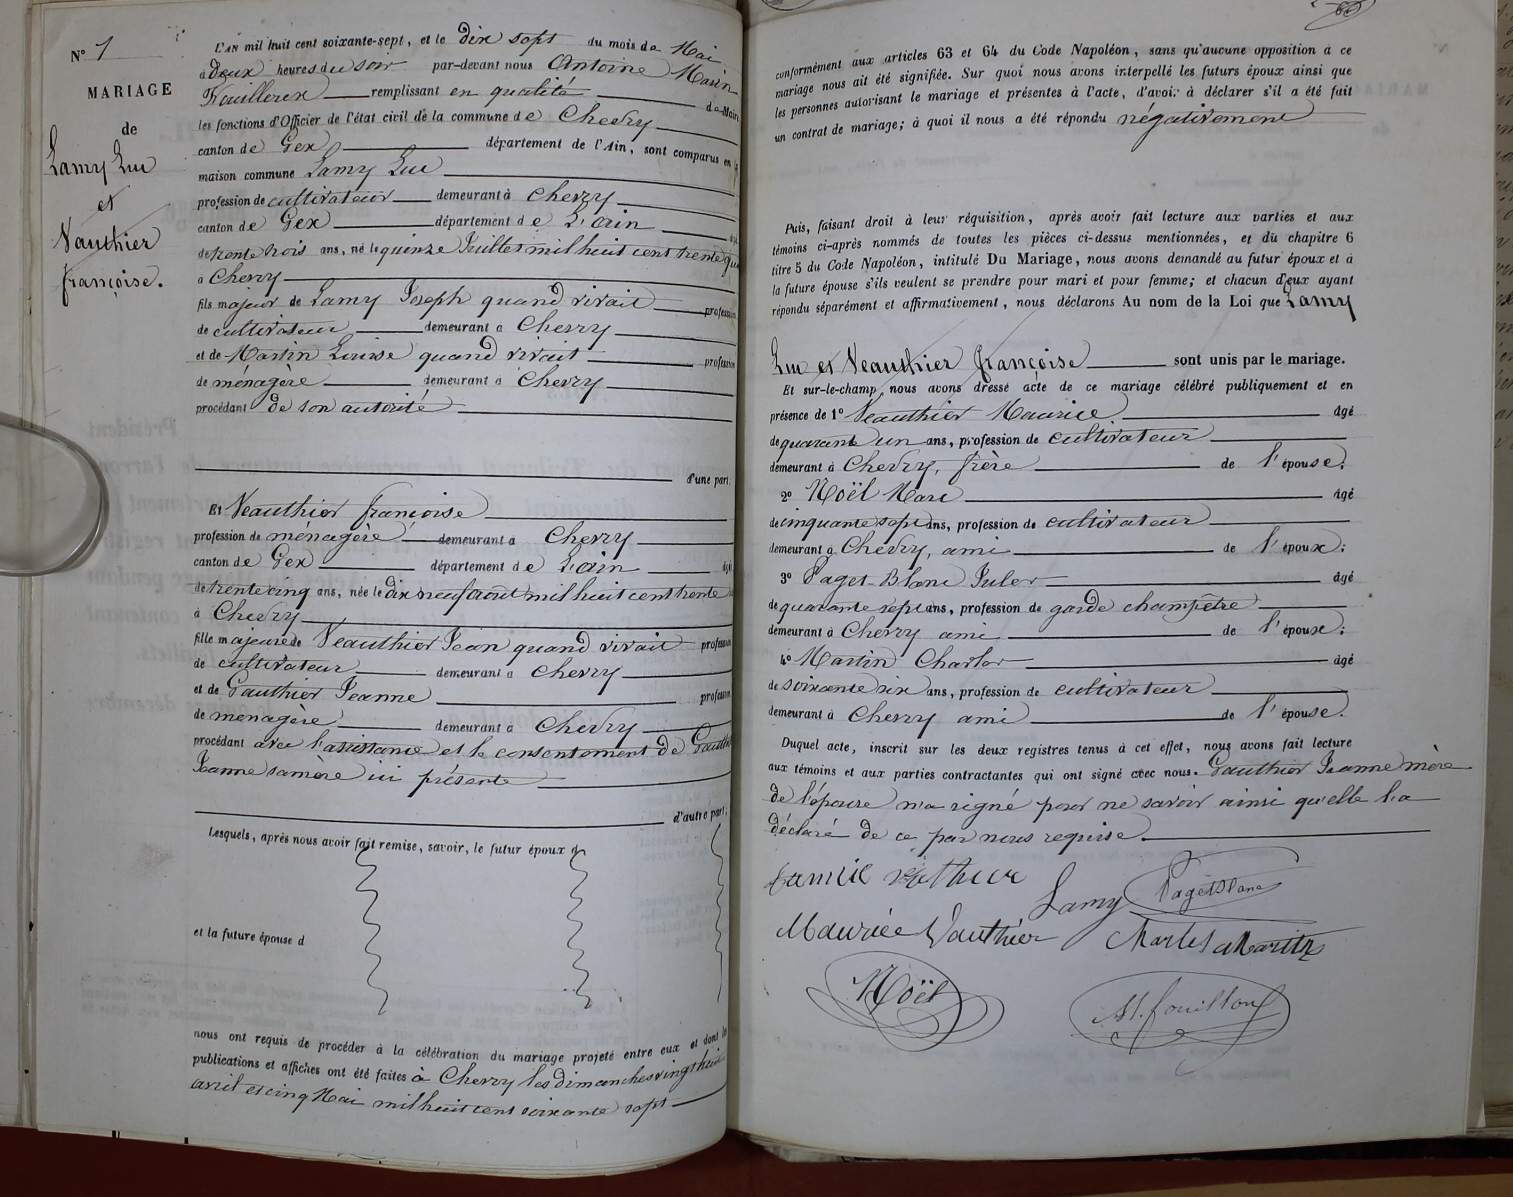 N° 1
MARIAGE
de
Lamy Luc
et
Vauthier
françoise.
L'AN mil huit cent soixante-sept, et le dix sept du mois de Mai
à deux heures du soir par-devant nous Antoine Marin
remplissant en qualité de Maire
les fonctions d'Officier de l'état civil de la commune de Chevry
canton de Gex département de l'Ain, sont comparus en la
maison commune Lamy Luc
profession de cultivateur demeurant à Chevry
canton de Gex département de L'ain
de trente trois ans, né le quinze Juillet mil huit cent trente
à Chevry
fils majeur de Lamy Joseph quand vivait profession
de cultivateur demeurant à Chevry
et de Martin Louise quand vivait profession
de ménagère demeurant à Chevry
procédant de son autorité
d'une part
Et Veauthier françoise
profession de ménagère demeurant à Chevry
canton de Gex département de L'ain
de trente cinq ans, née le dix neuf août mil huit cent trente
à Chevry
fille majeure de Veauthier Jean quand vivait profession
de cultivateur demeurant à Chevry
et de Gauthier Jeanne profession
de ménagère demeurant à Chevry
procédant avec l'assistance et le consentement de
Jeanne sa mère ici présente
d'autre part;
Lesquels, après nous avoir fait remise, savoir, le futur époux d
et la future épouse d
nous ont requis de procéder à la célébration du mariage projeté entre eux et dont les
publications et affiches ont été faites à Chevry les dimanches vingt huit
avril et cinq Mai mil huit cent soixante sept
conformément aux articles 63 et 64 du Code Napoléon, sans qu'aucune opposition à ce
mariage nous ait été signifiée. Sur quoi nous avons interpellé les futurs époux ainsi que
les personnes autorisant le mariage et présentes à l'acte, d'avoir à déclarer s'il a été fait
un contrat de mariage; à quoi il nous a été répondu négativement
Puis, faisant droit à leur réquisition, après avoir fait lecture aux parties et aux
témoins ci-après nommés de toutes les pièces ci-dessus mentionnées, et du chapitre 6
titre 5 du Code Napoléon, intitulé Du Mariage, nous avons demandé au futur époux et à
la future épouse s'ils veulent se prendre pour mari et pour femme; et chacun d'eux ayant
répondu séparément et affirmativement, nous déclarons Au nom de la Loi que Lamy
Luc et Veauthier françoise sont unis par le mariage.
Et sur-le-champ nous avons dressé acte de ce mariage célébré publiquement et en
présence de 1° Veauthier Maurice âgé
de quarante un ans, profession de cultivateur
demeurant à Chevry, frère de l'épouse.
2° Noël Marc âgé
de cinquante sept ans, profession de cultivateur
demeurant à Chevry, ami de l'époux;
3° Paget-Blanc Jules âgé
de quarante sept ans, profession de garde champêtre
demeurant à Chevry ami de l'époux;
4° Martin Charles âgé
de soixante six ans, profession de cultivateur
demeurant à Chevry ami de l'épouse.
Duquel acte, inscrit sur les deux registres tenus à cet effet, nous avons fait lecture
aux témoins et aux parties contractantes qui ont signé avec nous. Gauthier Jeanne mère
de l'épouse n'a signé pour ne savoir ainsi qu'elle l'a
déclaré de ce par nous requise.
Lamy PagetBlanc
Maurice Vauthier Charles Martin
Noël